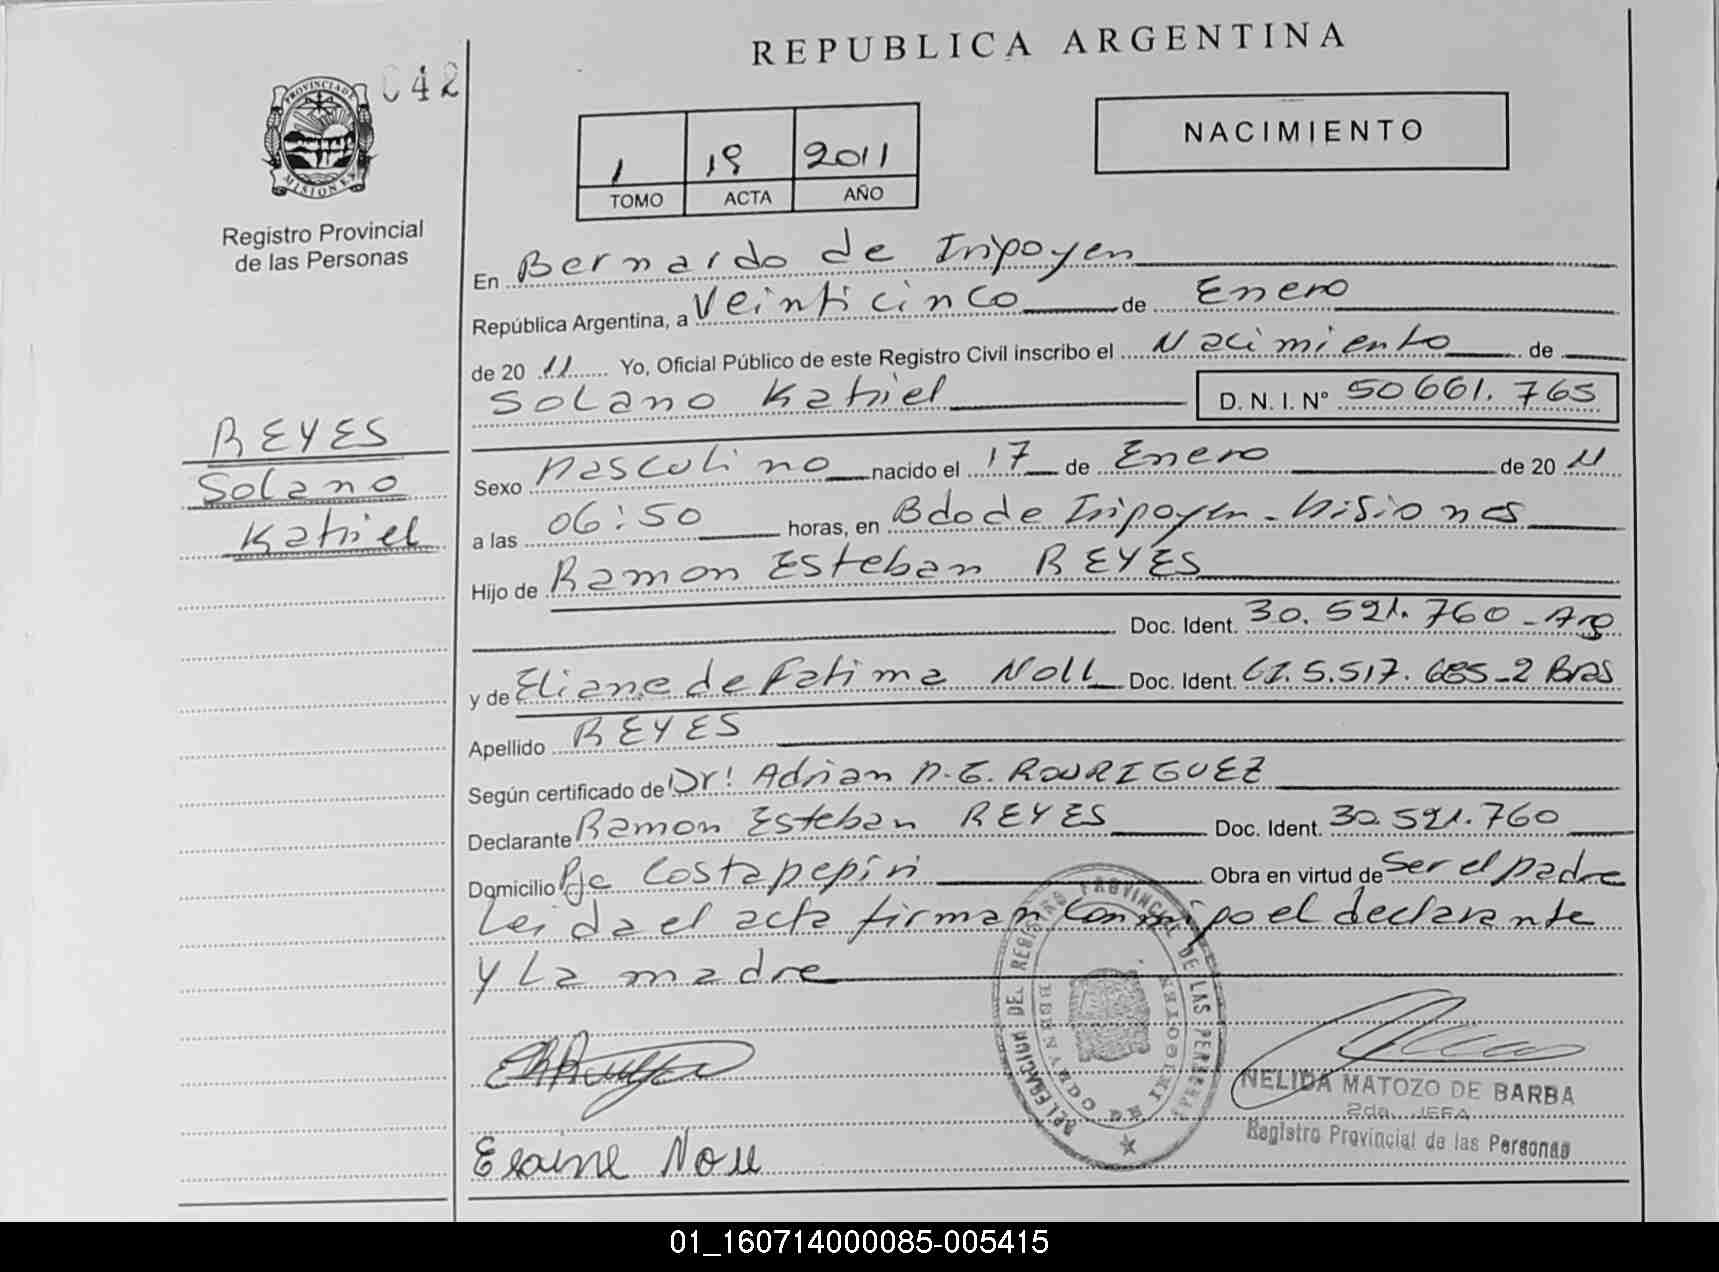 REPUBLICA ARGENTINA
042
PROVINCIA DE MISIONES
Registro Provincial
de las Personas
1 19 2011
TOMO ACTA AÑO
NACIMIENTO
En Bernardo de Irigoyen
República Argentina, a Veinticinco de Enero
de 2011 Yo, Oficial Público de este Registro Civil inscribo el Nacimiento de
Solano Katriel D. N. I. N° 50661.765
REYES
Solano
Katriel
Sexo Masculino nacido el 17 de Enero de 2011
a las 06:50 horas, en Bdo de Irigoyen - Misiones
Hijo de Ramon Esteban REYES
Doc. Ident. 30.521.760 - Arg
y de Eliane de Fatima Noll Doc. Ident. CI. 5.517.685-2 Bras
Apellido REYES
Según certificado de Dr: Adrian M. G. RODRIGUEZ
Declarante Ramon Esteban REYES Doc. Ident. 30.521.760
Domicilio Pje Costa pepiri Obra en virtud de Ser el padre
Leida el acta firman conmigo el declarante
y La madre
DELEGACION DEL REGISTRO PROVINCIAL DE LAS PERSONAS
BERNARDO DE IRIGOYEN
NELIDA MATOZO DE BARBA
2da. JEFA
Registro Provincial de las Personas
Noll
01_160714000085-005415